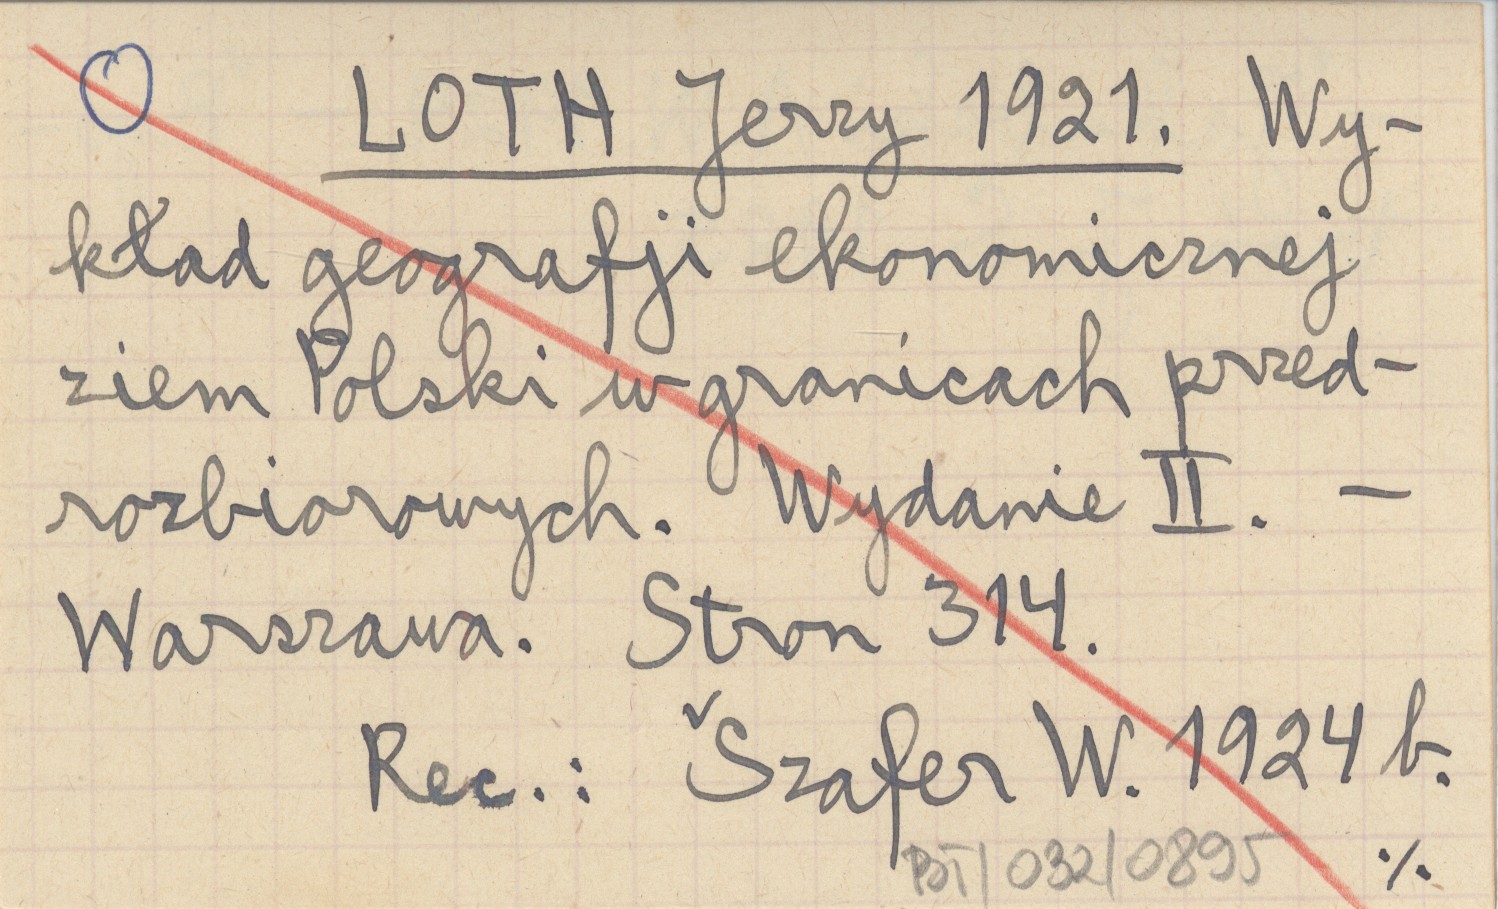 LOTH Jerzy 1921. Wy-
kład geografji ekonomicznej
ziem Polski w granicach przed-
rozbiorowych. Wydanie II. —
Warszawa. Stron 314.
Rec.: Szafer W. 1924 b.
POT/032/0895
./.